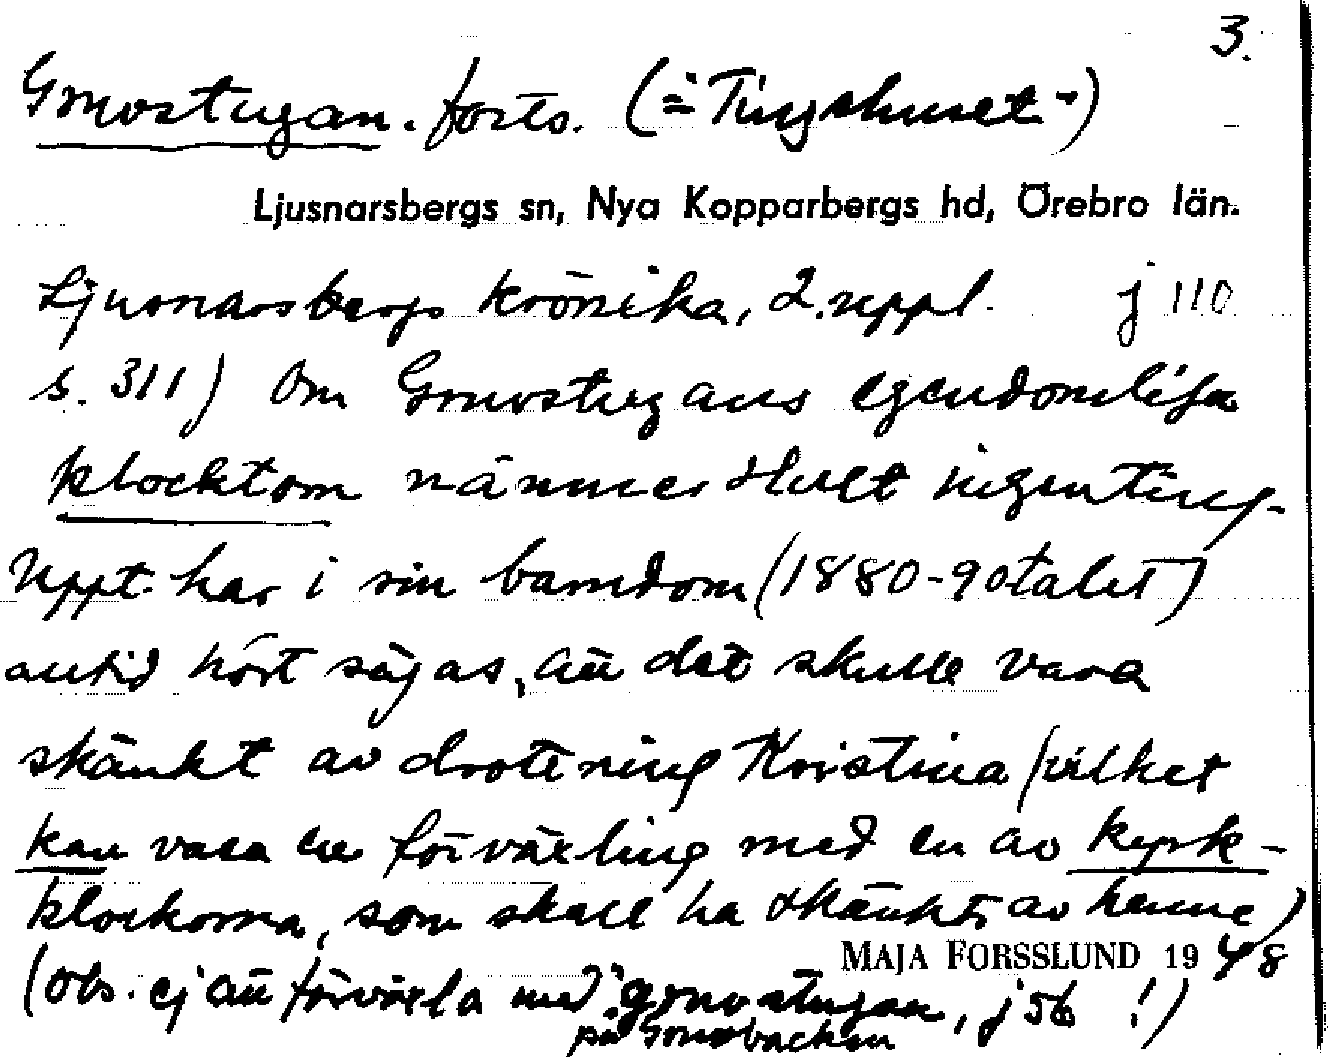 3.
Gruvstugan. forts. (="Tingshuset")
Ljusnarsbergs sn, Nya Kopparbergs hd, Örebro län.
Ljusnarsbergs krönika, 2. uppl. j 110
s. 311) Om Gruvstugans egendomliga
klocktorn nämner Hult ingenting.
Uppt. har i sin barndom (1880-90talet)
alltid hört sägas, att det skulle vara
skänkt av drottning Kristina (vilket
kan vara en förväxling med en av kyrk-
klockorna, som skall ha skänkts av henne)
MAJA FORSSLUND 19 48
(Obs. ej att förväxla med "gruvstugan, j 56 !)
på Gruvbacken